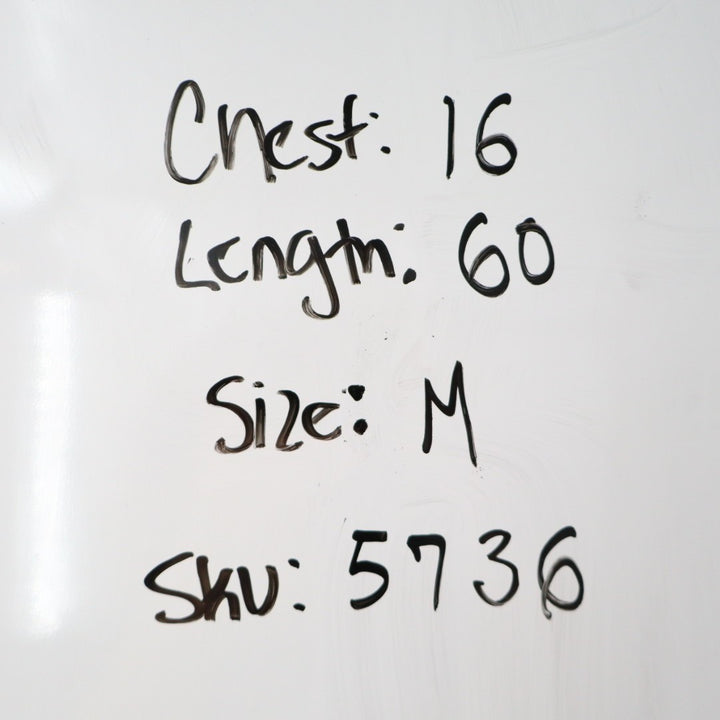 Chest: 16
Length: 60
Size: M
Sku: 5736